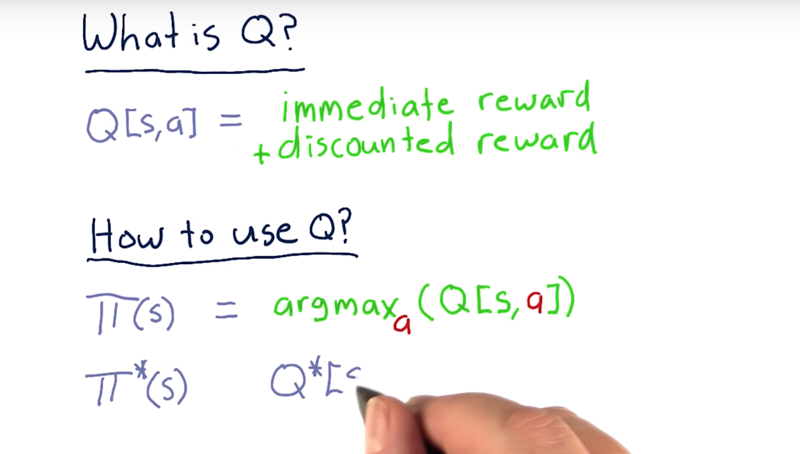 What is Q?
Q[s,a] = immediate reward
+ discounted reward
How to use Q?
Π(s) = argmaxₐ(Q[s,a])
Π*(s) Q*[s